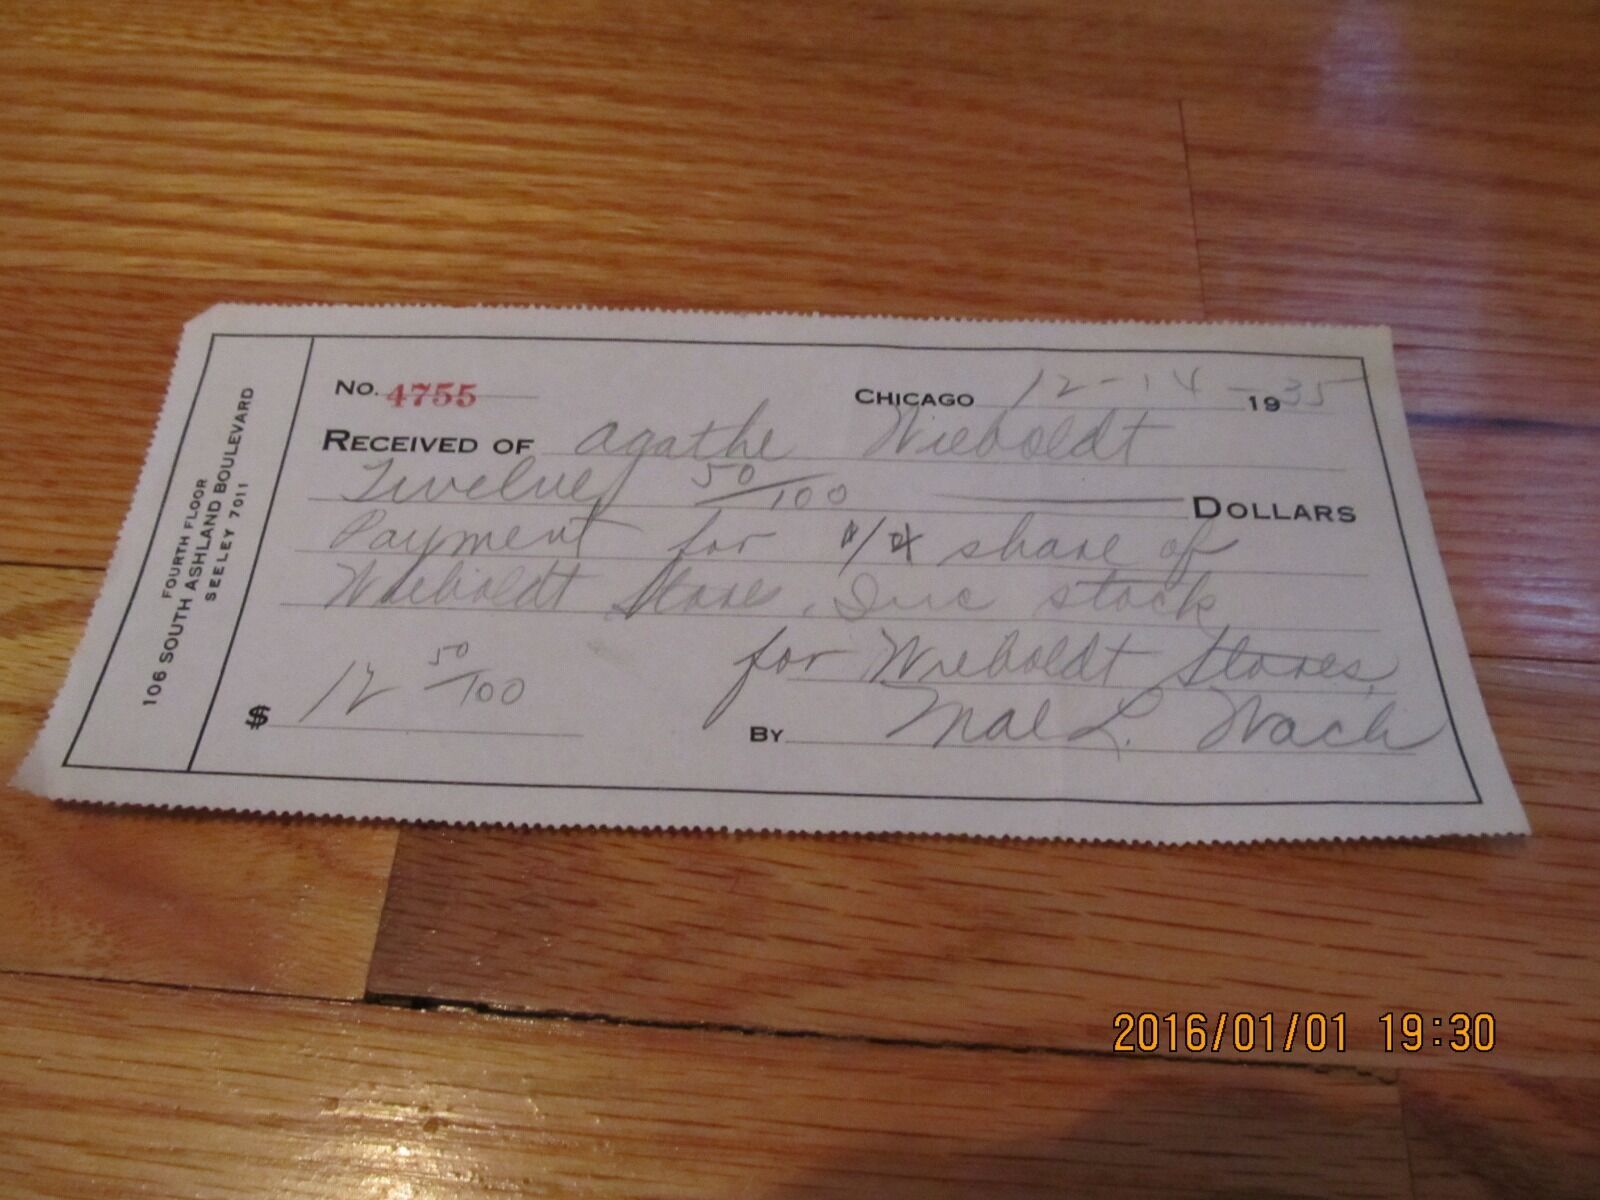 FOURTH FLOOR
106 SOUTH ASHLAND BOULEVARD
SEELEY 7011
No. 4755
CHICAGO 12-14-1935
RECEIVED OF Agathe Wieboldt
Twelve 50/100 DOLLARS
Payment for share of
Wieboldt Stores, Inc stock
for Wieboldt Stores,
$ 12 50/100
By Mae L. Wach
2016/01/01 19:30